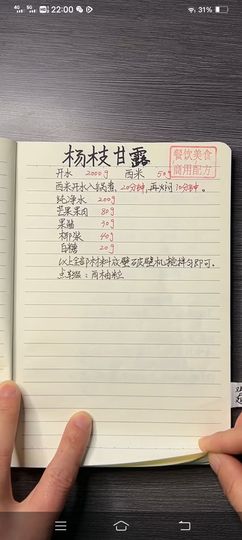 22:00
31%
杨枝甘露
餐饮美食
商用配方
开水 2000g 西米 50g
西米开水入锅煮20分钟,再焖10分钟。
纯净水 200g
芒果果肉 80g
果糖 30g
椰浆 40g
白糖 20g
以上全部材料放壁破壁机搅拌匀即可。
点缀:西柚粒